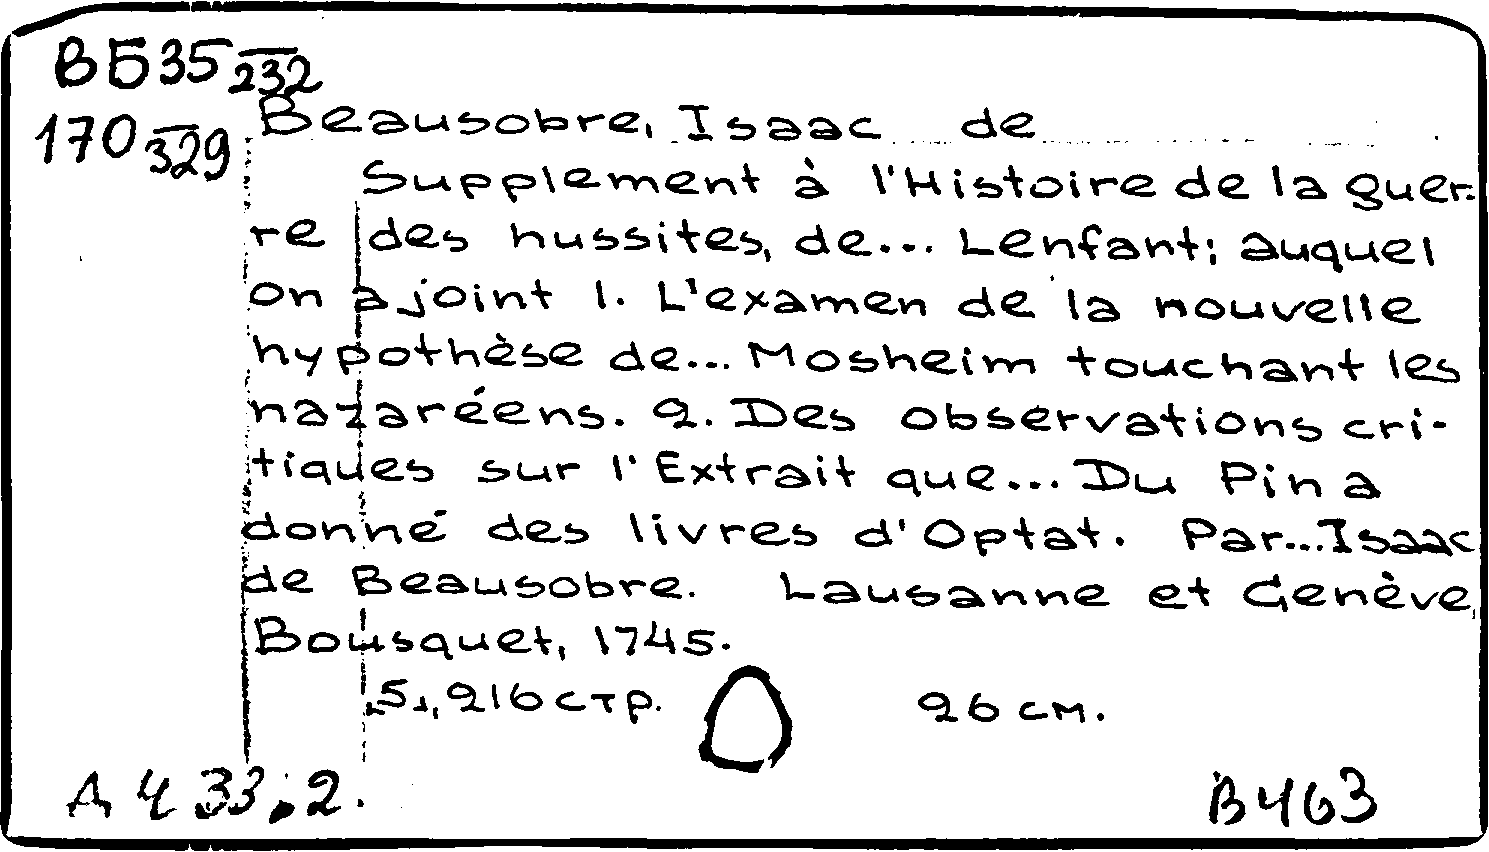 ВБ35 232
170 329
Beausobre, Isaac de
Supplement à l'Histoire de la guer-
re des hussites, de... Lenfant; auquel
on a joint 1. L'examen de la nouvelle
hypothèse de... Mosheim touchant les
nazaréens. 2. Des observations cri-
tiques sur l'Extrait que... Du Pin a
donné des livres d'Optat. Par... Isaac
de Beausobre. Lausanne et Genève,
Bousquet, 1745.
[5], 216 стр. 26 см.
Д 433.2. В463